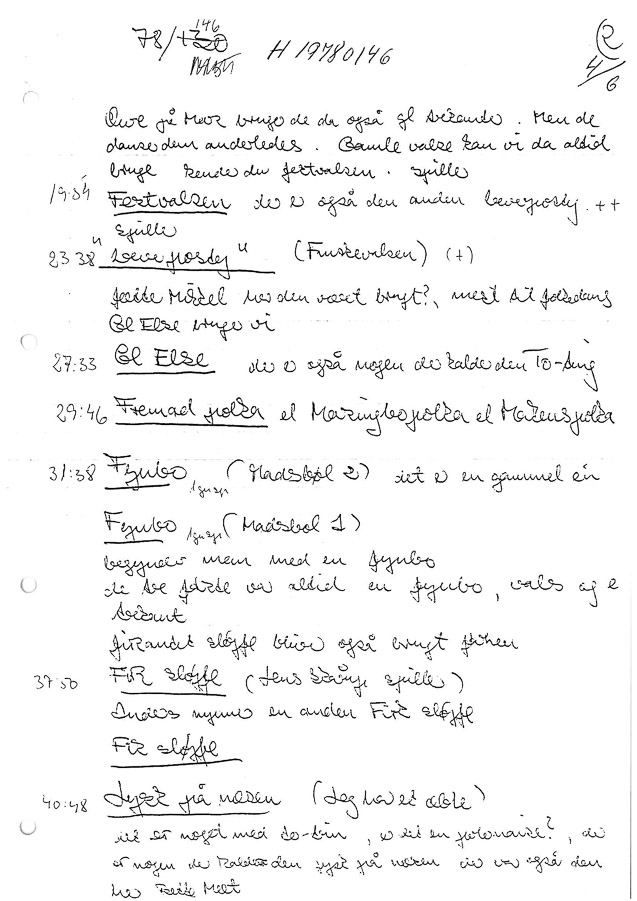 78/+320 146
H 19780146
R 4/6
Ove på Mors bruge de da også gl trekante. Men de
danse dem anderledes. Gamle valse kan vi da altid
bruge kende du festvalsen. spille
19:54 Festvalsen de e også den anden ++
spille
23:38 " " (Finskevalsen) (+)
har den været brugt?, mest til folkedans
Gl Else bruge vi
27:33 Gl Else de e også nogen de kalde den To-ting
29:46 Fremad polka el Mazingbopolka el Mazenspolka
31:38 Fynbo (Madsbøl 2) det e en gammel en
Fynbo (Madsbøl 1)
begynder mem med en fynbo
de to første va altid en fynbo, vals og e
trekant
firkantet sløjfe blive også brugt
37:50 FIR sløjfe (Jens spille)
Anders nynne en anden Fir sløjfe
Fir sløjfe
40:48 Tysk på næsen (Jeg har et æble)
det er noget med to-trin, e det en polonaise?, de
er nogen de kalder den tysk på næsen de va også den